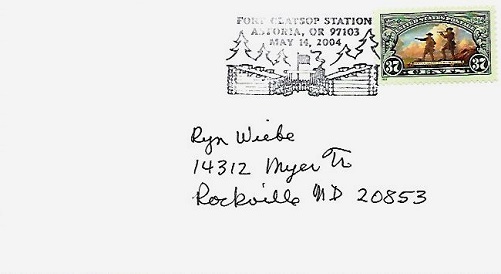 FORT CLATSOP STATION
ASTORIA, OR 97103
MAY 14, 2004
UNITED STATES POSTAGE
37 37
Ryn Wiebe
14312 Myer Tr
Rockville MD 20853